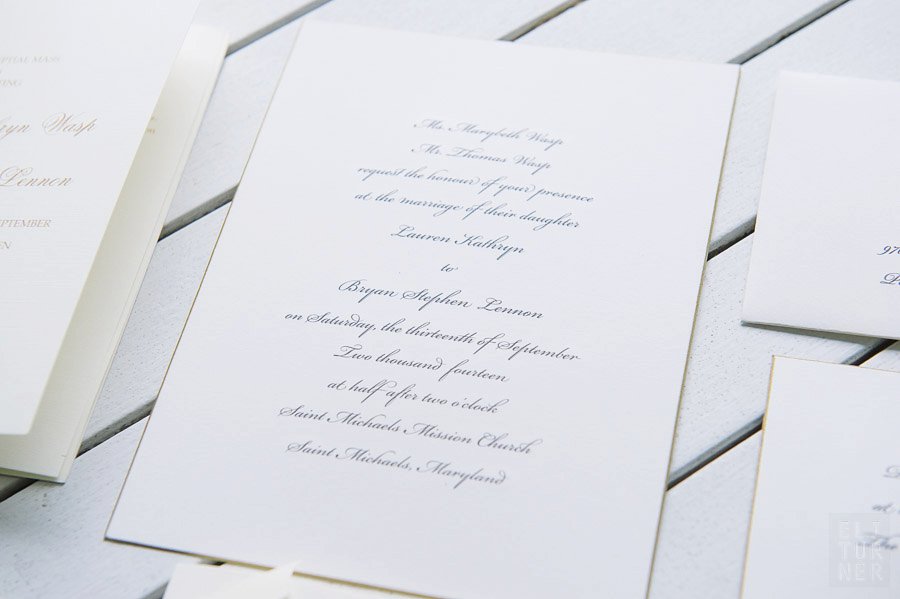 Ms. Marybeth Wasp
Mr. Thomas Wasp
request the honour of your presence
at the marriage of their daughter
Lauren Kathryn
to
Bryan Stephen Lennon
on Saturday, the thirteenth of September
Two thousand fourteen
at half after two o'clock
Saint Michaels Mission Church
Saint Michaels, Maryland
MASS
Wasp
Lennon
SEPTEMBER
970
ELI
TURNER